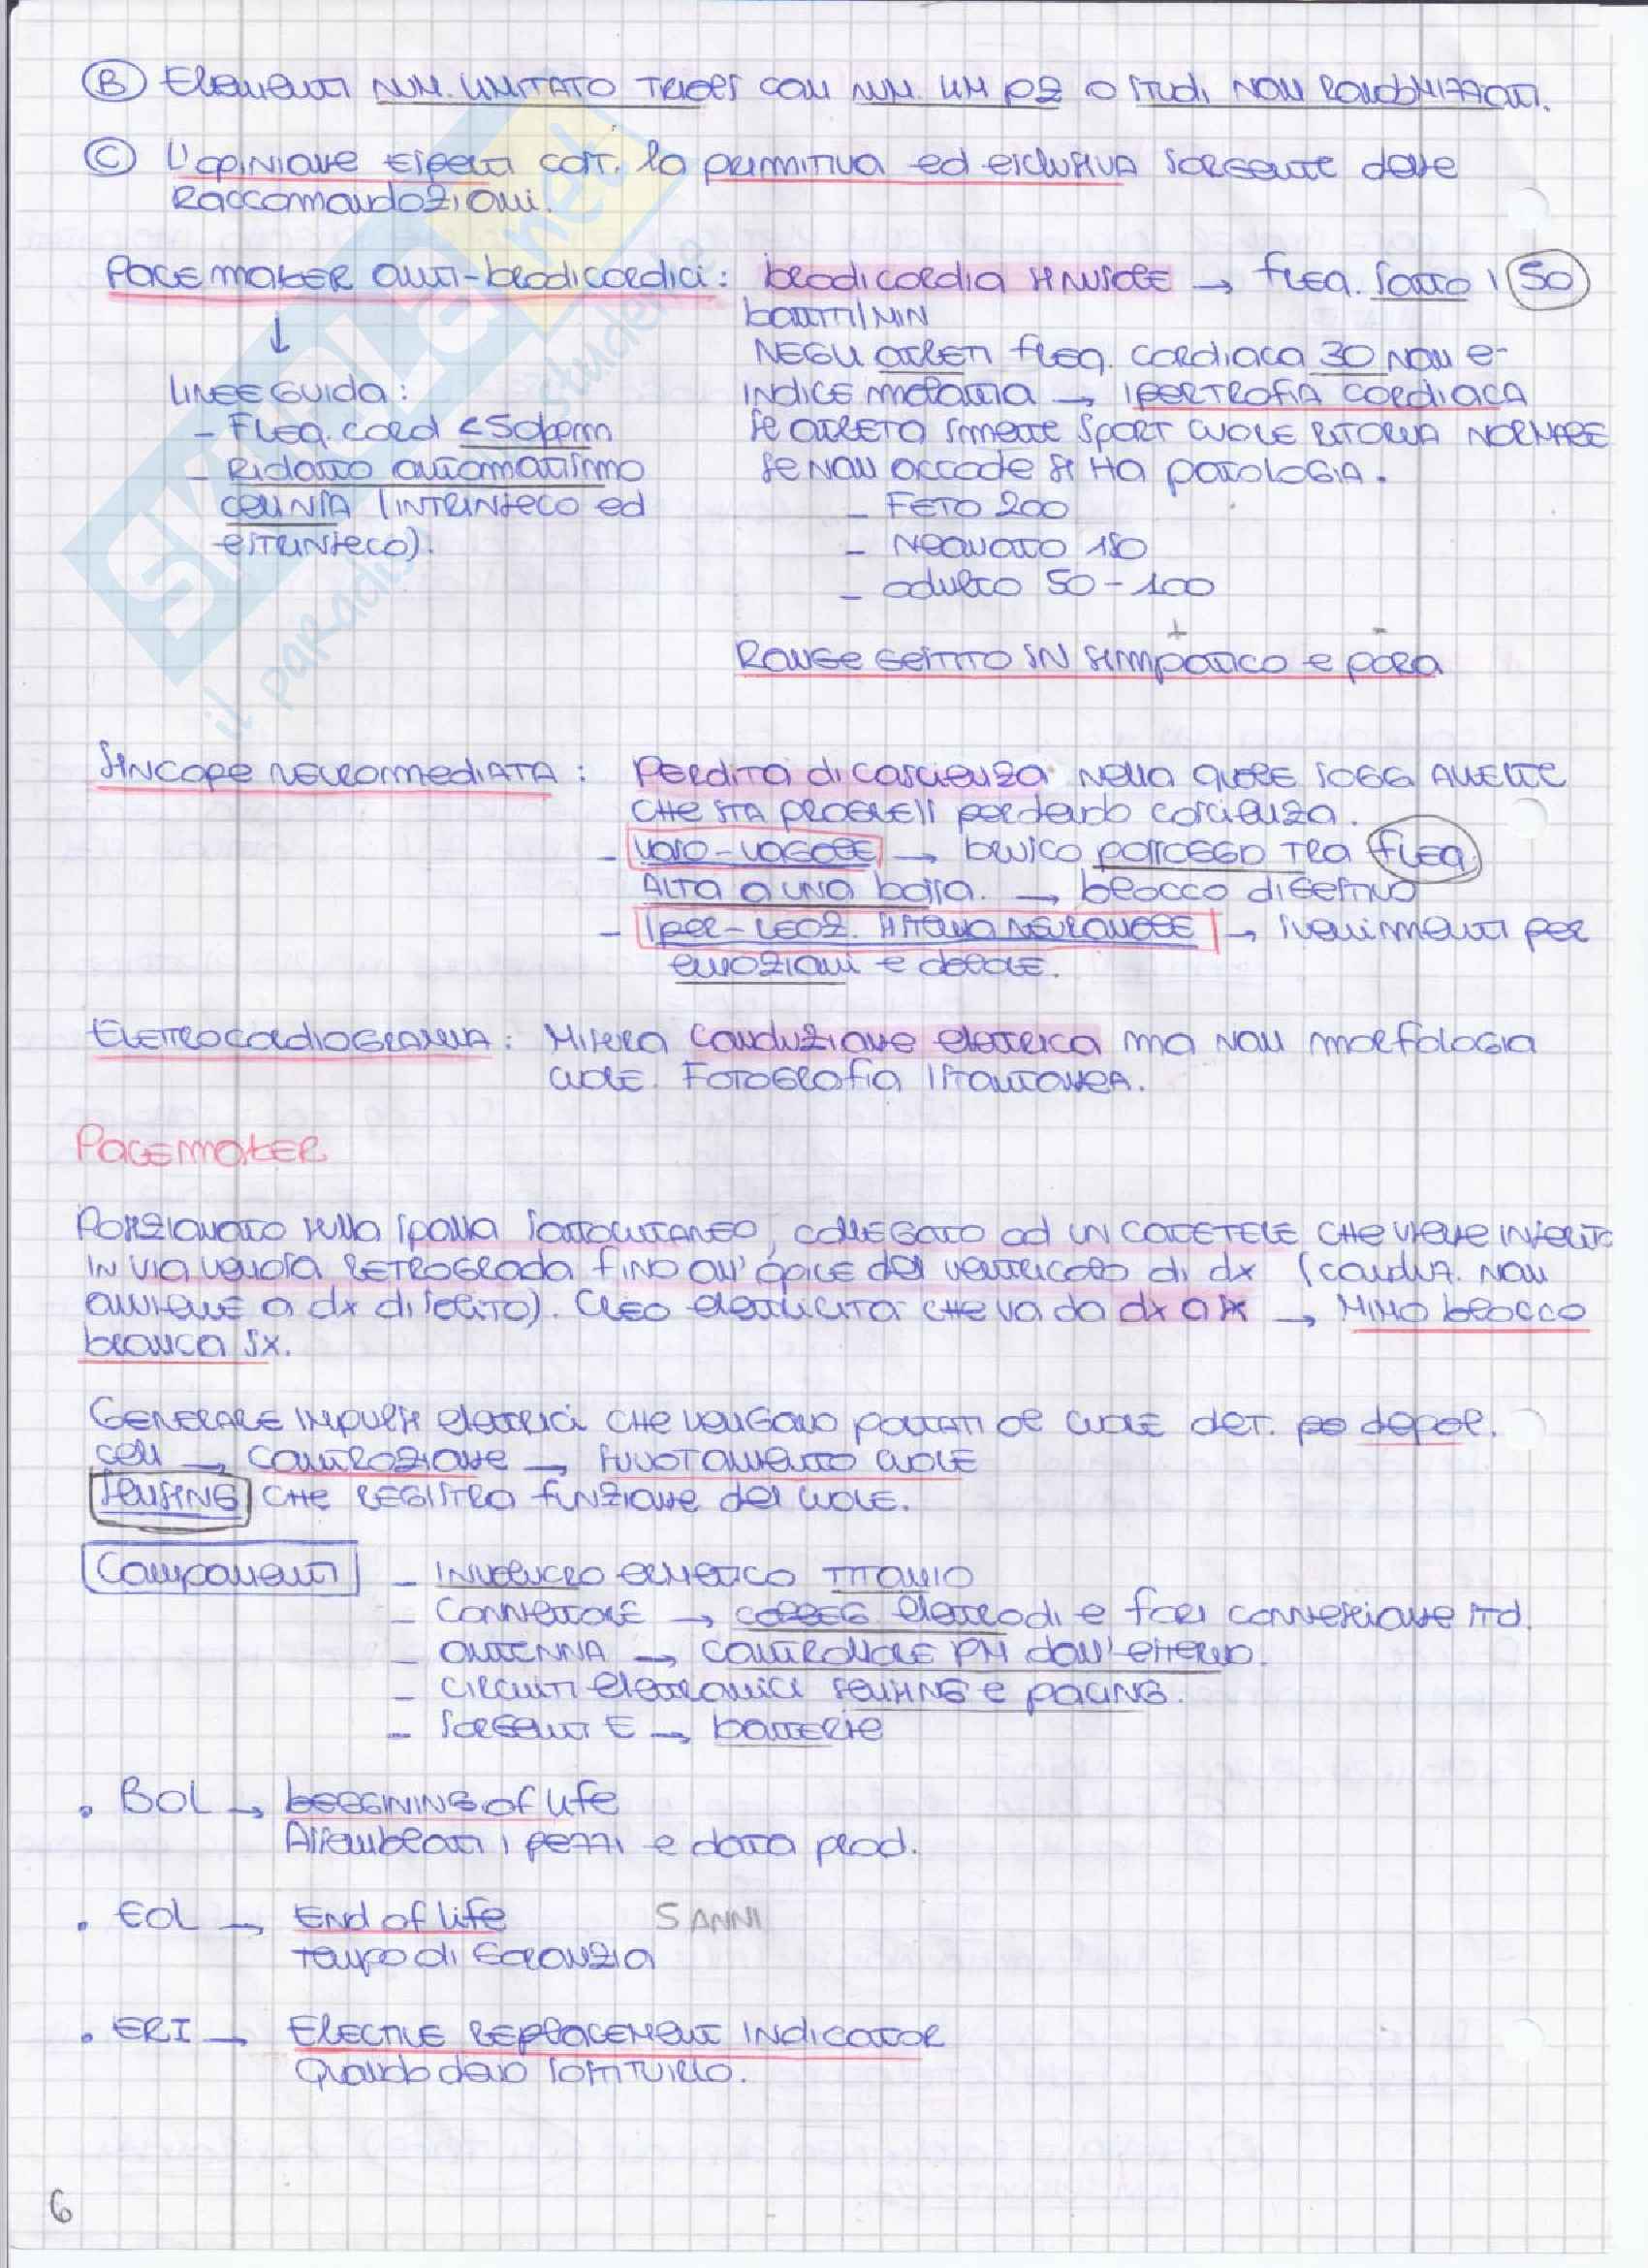 Ⓑ Elementi num. limitato trials con num. lim pz o studi non randomizzati.
Ⓒ L'opinione esperti cost. la primitiva ed esclusiva sorgente delle
raccomandazioni.
Pacemaker anti-bradicardici: bradicardia sinusale → freq. sotto i 50
battiti/min
negli atleti freq. cardiaca 30 non è
indice malattia → ipertrofia cardiaca
se atleta smette sport cuore ritorna normale
se non accade si ha patologia.
- feto 200
- neonato 180
- adulto 50 - 100
+ -
Range gestito SN simpatico e para
↓
Linee guida:
- Freq. card < 50bpm
- Ridotto automatismo
cell NSA (intrinseco ed
estrinseco).
Sincope neuromediata: perdita di coscienza nella quale sogg avverte
che sta progress perdendo coscienza.
- vaso-vagale → brusco passaggio tra freq.
alta a una bassa. → blocco digestivo
- Iper-reaz. sistema neuronale → svenimenti per
emozioni e dolore.
Elettrocardiogramma: misura conduzione elettrica ma non morfologia
cuore. Fotografia istantanea.
Pacemaker
Posizionato sulla spalla sottocutaneo, collegato ad un catetere che viene inserito
in via venosa retrograda fino all'apice del ventricolo di dx (conduz. non
avviene a dx di solito). Creo elettricità che va da dx a sx → mimo blocco
branca sx.
Generare impulsi elettrici che vengono portati al cuore det. depol.
cell → contrazione → svuotamento cuore
Sensing che registra funzione del cuore.
Componenti - involucro ermetico titanio
- connettore → colleg elettrodi e fori connessione std.
- antenna → controllare PM dall'esterno.
- circuiti elettronici sensing e pacing.
- sorgenti E → batterie
. BOL → beggining of life
Assemblati i pezzi e data prod.
. EOL → End of life 5 anni
tempo di garanzia
. ERI → Elective replacement indicator
Quando devo sostituirlo.
6
SKUOLA.net
il paradiso dello studente